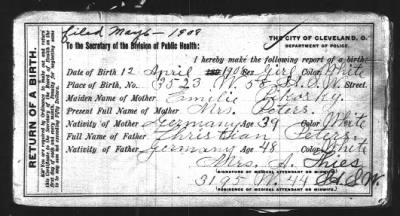 filed May 6 - 1908
THE CITY OF CLEVELAND, O.
DEPARTMENT OF POLICE.
To the Secretary of the Division of Public Health:
I hereby make the following report of a birth:
Date of Birth 12 April 1908 Sex Girl Color White
Place of Birth, No. 3523 W. 58 St. S.W. Street.
Maiden Name of Mother Emilie
Present Full Name of Mother Mrs. Peters
Nativity of Mother Germany Age 39 Color White
Full Name of Father Christian Peters
Nativity of Father Germany Age 48 Color White
Mrs. A. Thies
SIGNATURE OF MEDICAL ATTENDANT OR MIDWIFE.
3195 W. 44 St. S.W.
RESIDENCE OF MEDICAL ATTENDANT OR MIDWIFE.
RETURN OF A BIRTH.